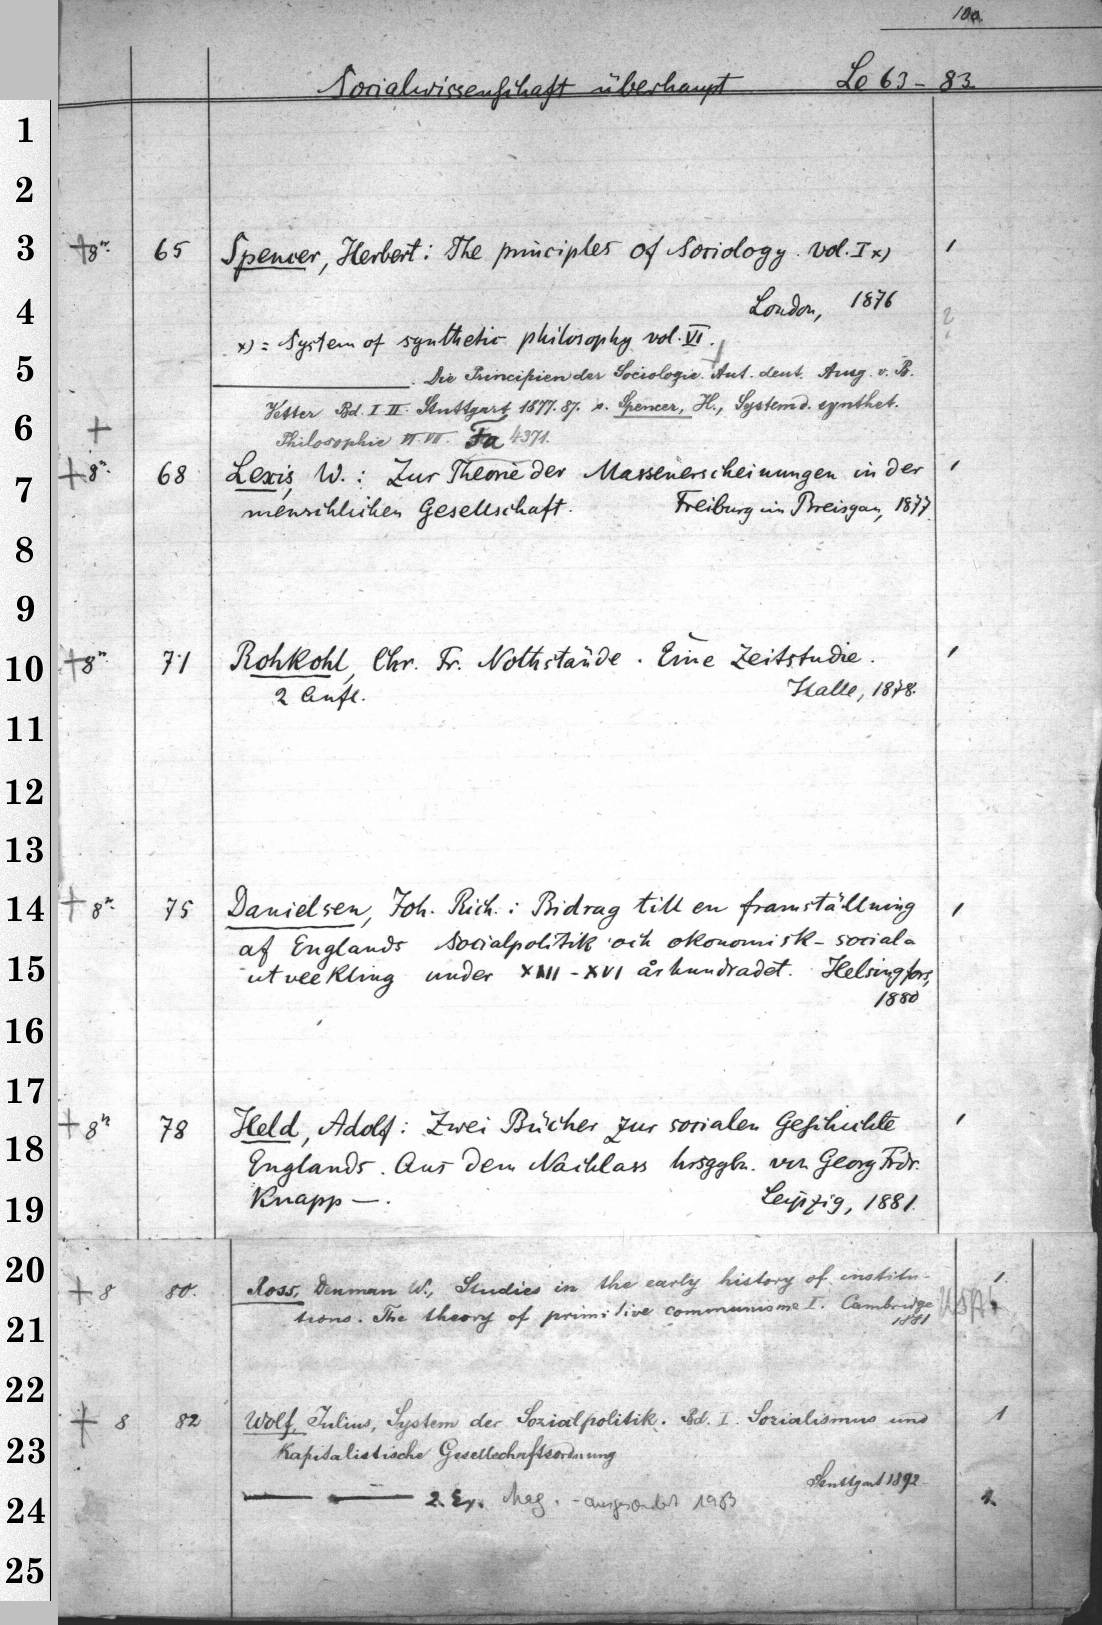 100.
Socialwissenschaft überhaupt Lo 63 - 83.
1
2
3 +8°. 65 Spencer, Herbert: The principles of Sociology. vol. I x) 1
4 London, 1876 2
x) = System of synthetic philosophy vol. VI.
5 ___________. Die Principien der Sociologie. Aut. deut. Ausg. v. B.
Vetter Bd. I II. Stuttgart 1877. 87. s. Spencer, H., System d. synthet.
6 + Philosophie VI. VII. Fa 4371.
7 +8°. 68 Lexis, W.: Zur Theorie der Massenerscheinungen in der 1
menschlichen Gesellschaft. Freiburg im Breisgau, 1877.
8
9
10 +8°. 71 Rohkohl, Chr. Fr. Nothstände. Eine Zeitstudie. 1
2 Aufl. Halle, 1878.
11
12
13
14 +8°. 75 Danielsen, Joh. Rich.: Bidrag till en framställning 1
af Englands Socialpolitik och ekonomisk-sociala
15 utveckling under XIII - XVI århundradet. Helsingfors,
1880
16
17
18 +8° 78 Held, Adolf: Zwei Bücher zur socialen Geschichte 1
Englands. Aus dem Nachlass hrsggbn. von Georg Frdr.
19 Knapp —. Leipzig, 1881.
20 +8 80. Ross, Denman W., Studies in the early history of institu- 1.
21 tions. The theory of primitive communisme I. Cambridge USA
1881
22
82 +8 Wolf, Julius, System der Sozialpolitik. Bd. I. Sozialismus und 1
23 Kapitalistische Gesellschaftsordnung
Stuttgart 1892
24 — — 2. Ex. Mag. - ausgesondert 1983 2.
25